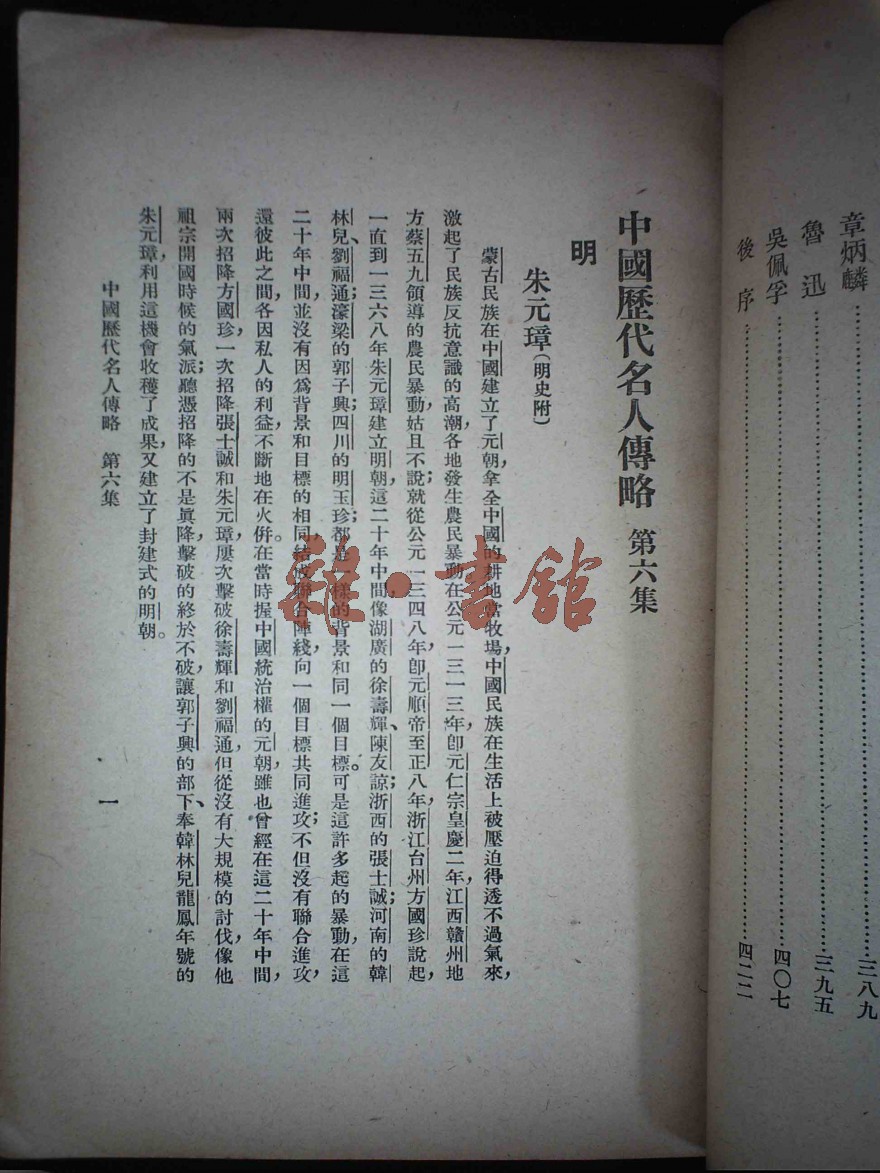 章炳麟……三八九
魯迅……三九五
吳佩孚……四〇七
後序……四二二
中國歷代名人傳略 第六集
明
朱元璋(明史附)
蒙古民族在中國建立了元朝,拿全中國的耕地當牧場,中國民族在生活上被壓迫得透不過氣來,
激起了民族反抗意識的高潮,各地發生農民暴動在公元一三一三年卽元仁宗皇慶二年,江西贛州地
方蔡五九領導的農民暴動,姑且不說;就從公元一三四八年卽元順帝至正八年,浙江台州方國珍說起,
一直到一三六八年朱元璋建立明朝,這二十年中間,像湖廣的徐壽輝、陳友諒;浙西的張士誠;河南的韓
林兒、劉福通;濠梁的郭子興;四川的明玉珍;都是一樣的背景和同一個目標。可是這許多起的暴動,在這
二十年中間,並沒有因爲背景和目標的相同,結成聯合陣綫,向一個目標共同進攻;不但沒有聯合進攻,
還彼此之間,各因私人的利益,不斷地在火倂。在當時握中國統治權的元朝,雖也曾經在這二十年中間,
兩次招降方國珍,一次招降張士誠和朱元璋,屢次擊破徐壽輝和劉福通,但從沒有大規模的討伐,像他
祖宗開國時候的氣派;聽憑招降的不是眞降,擊破的終於不破,讓郭子興的部下、奉韓林兒龍鳳年號的
朱元璋,利用這機會收穫了成果,又建立了封建式的明朝。
中國歷代名人傳略 第六集 一
雜·書館